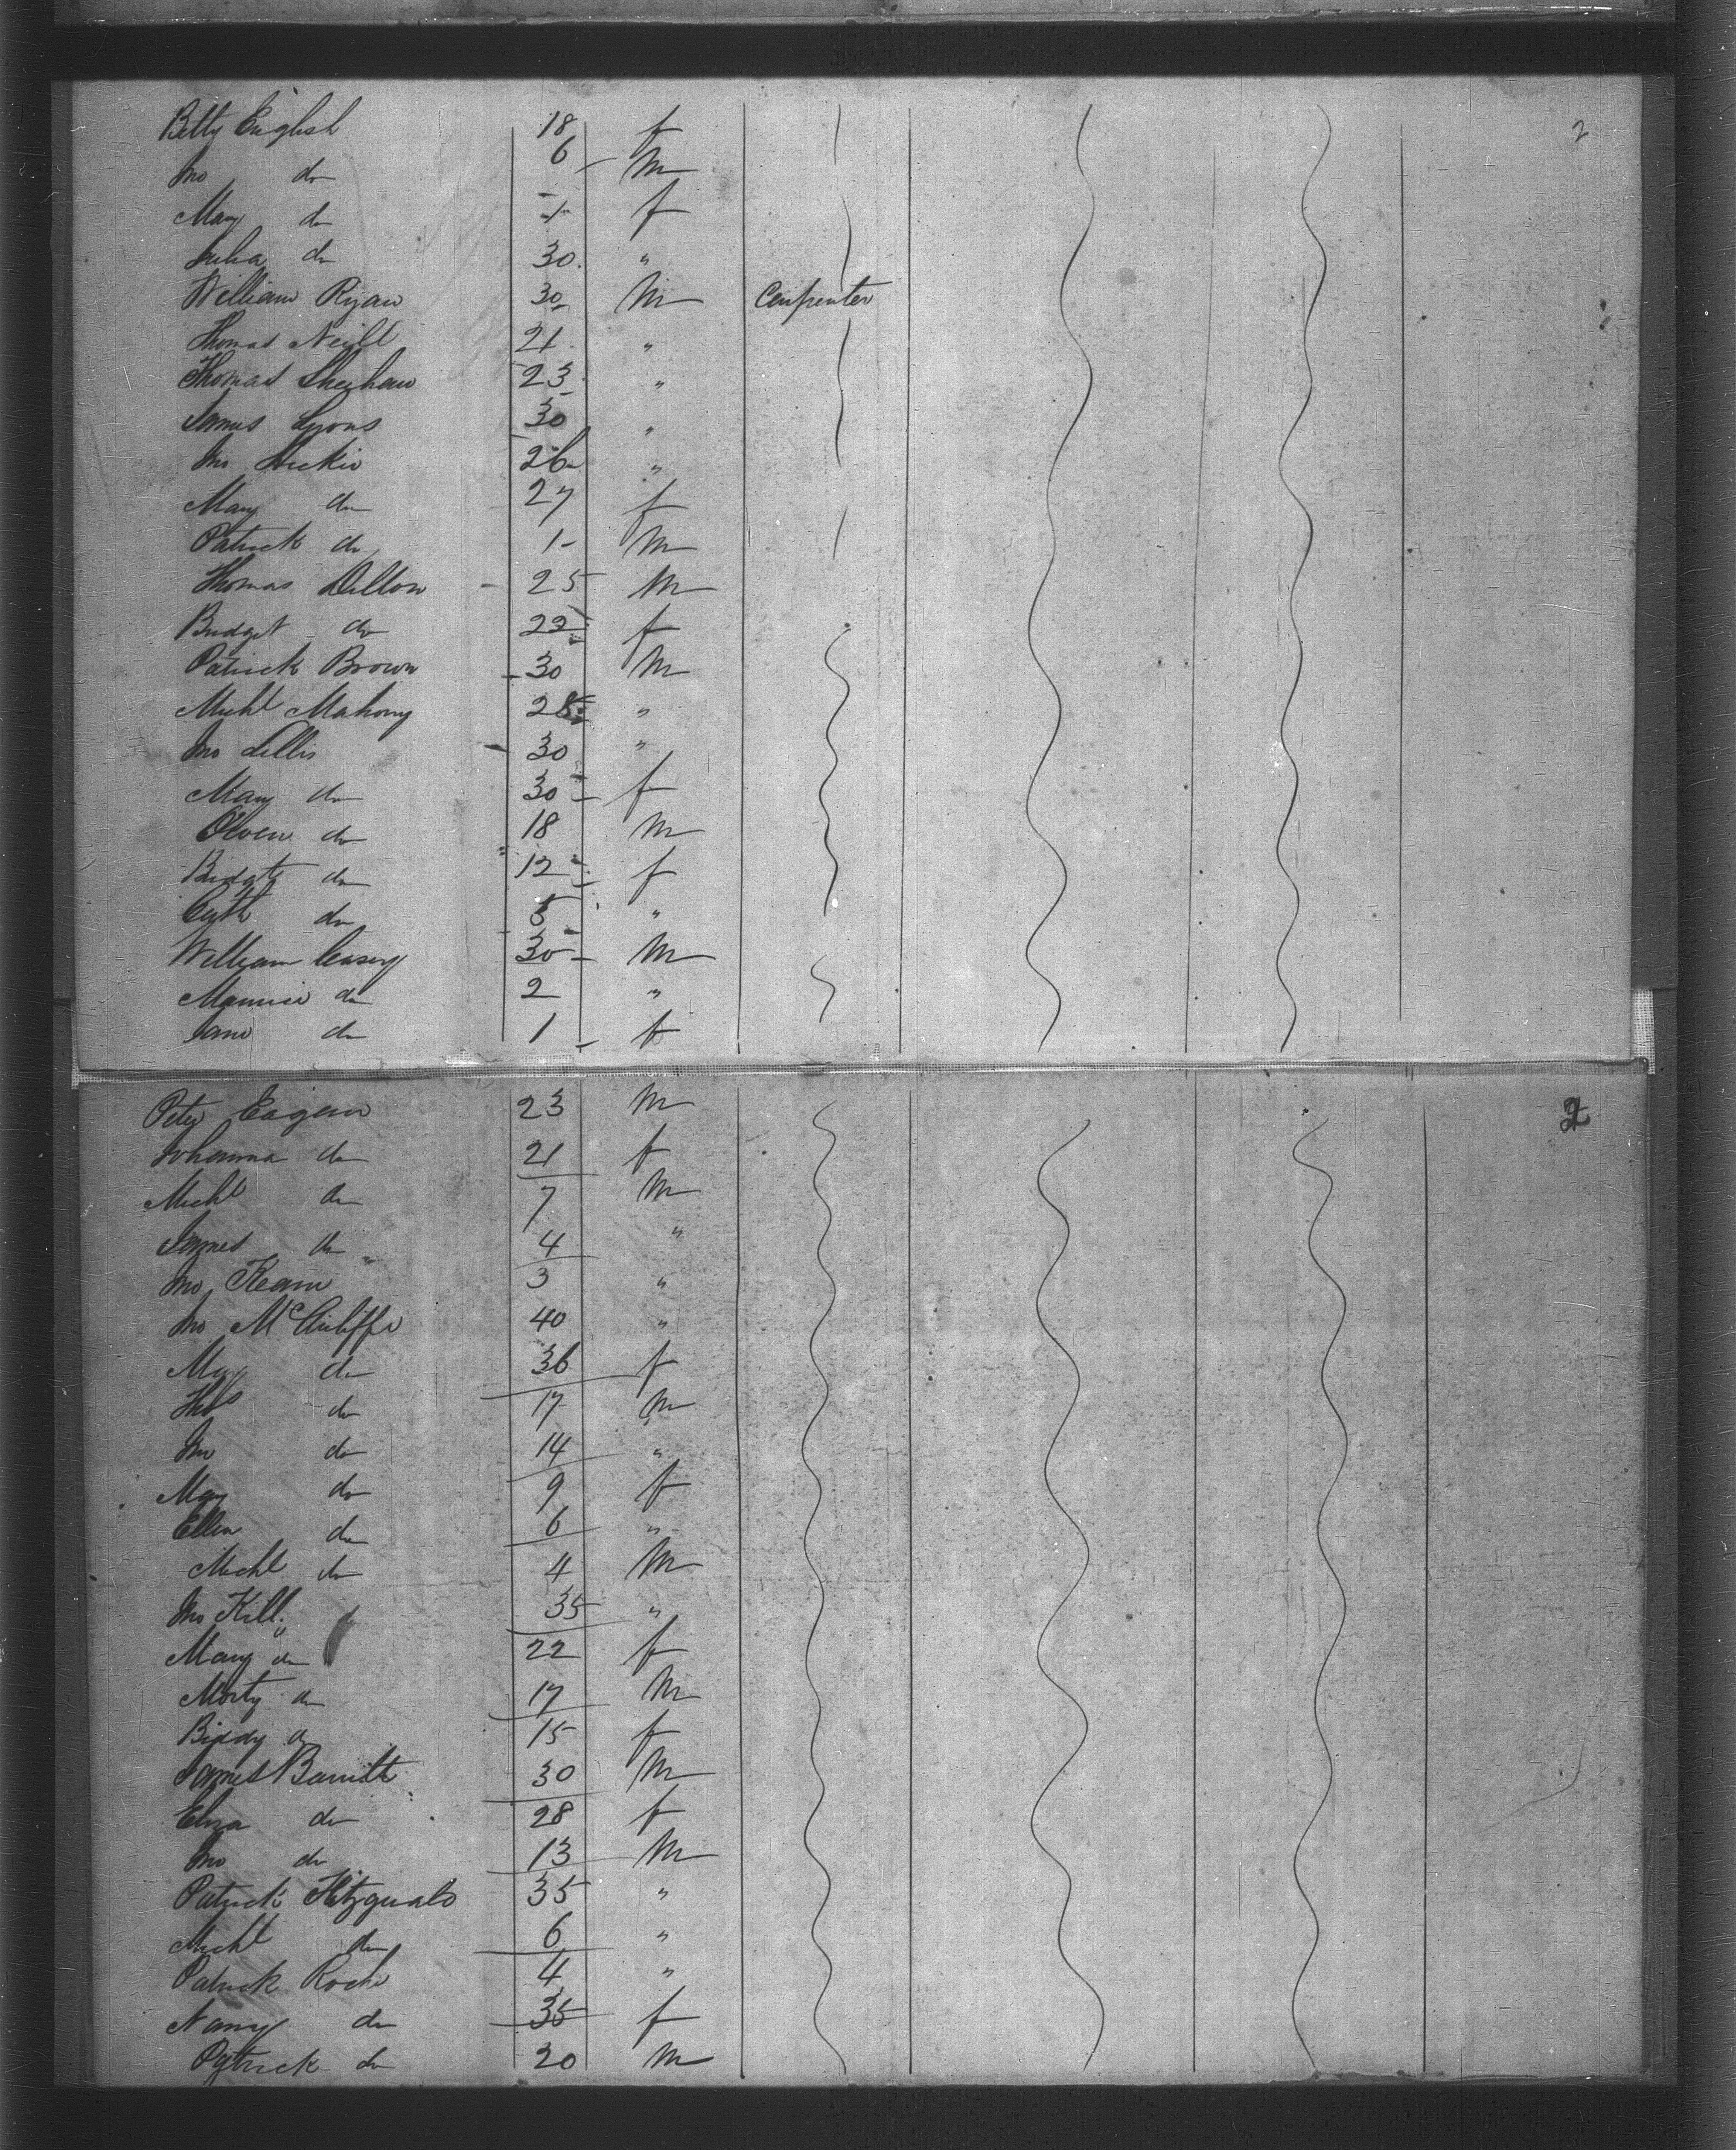 Betty English 18 f 2
Jno do 6 M
Mary do 1 f
Julia do 30 "
William Ryan 30 M Carpenter
Thomas Neill 21 "
Thomas Sheehan 23 "
James Lyons 30 "
Jno Hickie 26 "
Mary do 27 f
Patrick do 1 M
Thomas Dillon 25 M
Bridget do 22 f
Patrick Brown 30 M
Michl Mahony 28 "
Jno Lillis 30 "
Mary do 30 f
Owen do 18 M
Bridgt do 12 f
Cath do 5 "
William Casey 30 M
Maurice do 2 "
Jane do 1 f
Peter Eagan 23 M
Johanna do 21 f
Michl do 7 M
James do 4 "
Jno Keane 3 "
Jno McAuliffe 40 "
Mary do 36 f
Thos do 17 M
Jno do 14 "
Mary do 9 f
Ellen do 6 "
Michl do 4 M
Jno Kill 35 "
Mary do 22 f
Morty do 17 M
Biddy do 15 f
James Barrett 30 M
Eliza do 28 f
Jno do 13 M
Patrick Fitzgerald 35 "
Michl do 6 "
Patrick Roche 4 "
Nancy do 35 f
Patrick do 20 M